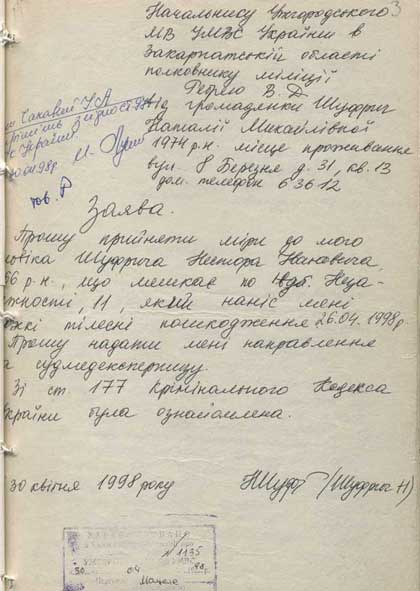 Начальнику Ужгородського
МВ УМВС України в
Закарпатській області
полковнику міліції
В. Д
від громадянки Шуфрич
Наталії Михайлівної
1974 р.н. місце проживання
вул. 8 Березня д. 31, кв. 13
дом. телефон 63612
України
04 98р
тов.
Заява.
Прошу прийняти міри до мого
Шуфрича Нестора
66 р.н., що мешкає по
11, який наніс мені
жкі тілесні пошкодження 26.04.1998р
Прошу надати мені направлення
а судмедекспертизу.
Зі ст. 177 Крімінального Кодекса
України була ознайомлена.
30 квітня 1998 року
/Шуфрич Н)
N 1135
30 04 98р.